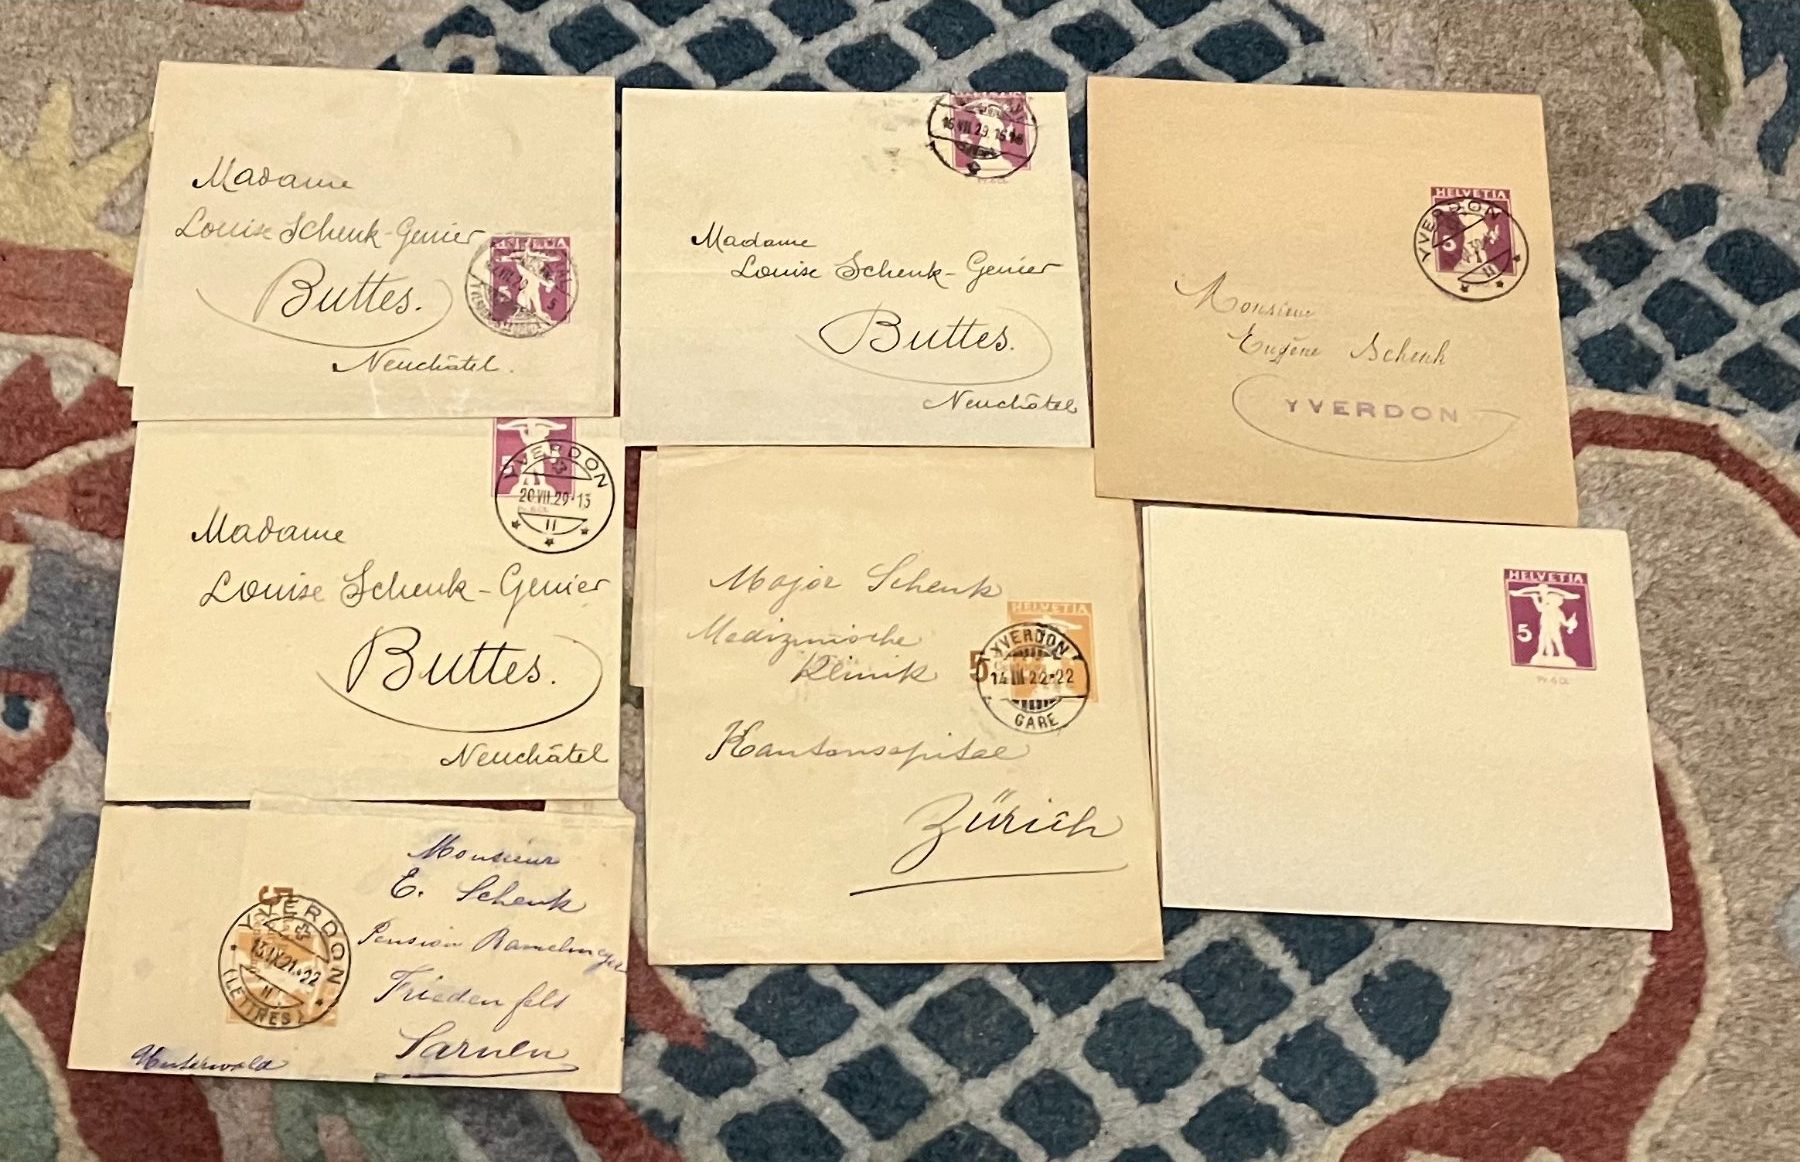 Madame
Louise Schenk-Genier
Buttes.
Neuchâtel.
HELVETIA
5
HELVETIA
16 VII 29
Madame
Louise Schenk-Genier
Buttes.
Neuchâtel
HELVETIA
YVERDON
5
II
Monsieur
Eugène Schenk
YVERDON
YVERDON
20 VII 29-13
II
Madame
Louise Schenk-Genier
Buttes.
Neuchâtel
Major Schenk
Medizinische
Klinik
Kantonsspital
Zürich
HELVETIA
5
YVERDON
14 III 22-22
GARE
HELVETIA
5
Pr. 6 Ct.
Monsieur
E. Schenk
Pension
Friedenfels
Sarnen
Unterwald
5
YVERDON
13.IX.21.-22
II
(LETTRES)